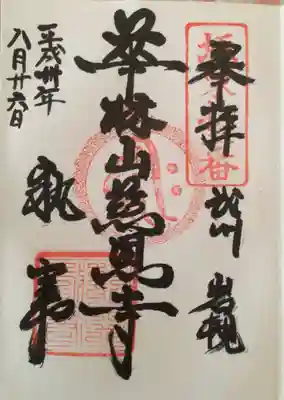 奉拝
武州 岩槻
華林山慈恩寺
執事
平成卅年
八月廿六日